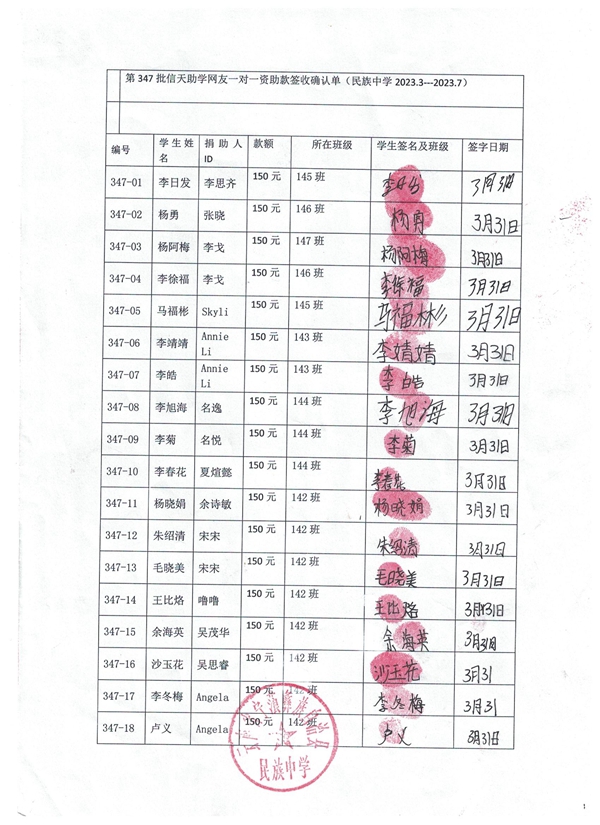 第 347 批信天助学网友一对一资助款签收确认单（民族中学 2023.3---2023.7）
编号 学生姓名 捐助人ID 款额 所在班级 学生签名及班级 签字日期
347-01 李日发 李思齐 150 元 145 班 李日发 3月31日
347-02 杨勇 张晓 150 元 146 班 杨勇 3月31日
347-03 杨阿梅 李戈 150 元 147 班 杨阿梅 3月31日
347-04 李徐福 李戈 150 元 146 班 李徐福 3月31日
347-05 马福彬 Skyli 150 元 145 班 马福彬 3月31日
347-06 李靖靖 Annie Li 150 元 143 班 李婧婧 3月31日
347-07 李皓 Annie Li 150 元 143 班 李皓 3月31日
347-08 李旭海 名逸 150 元 144 班 李旭海 3月31日
347-09 李菊 名悦 150 元 144 班 李菊 3月31日
347-10 李春花 夏煊懿 150 元 144 班 李春花 3月31日
347-11 杨晓娟 余诗敏 150 元 142 班 杨晓娟 3月31日
347-12 朱绍清 宋宋 150 元 142 班 朱绍清 3月31日
347-13 毛晓美 宋宋 150 元 142 班 毛晓美 3月31日
347-14 王比烙 噜噜 150 元 142 班 王比烙 3月31日
347-15 余海英 吴茂华 150 元 142 班 余海英 3月31日
347-16 沙玉花 吴思睿 150 元 142 班 沙玉花 3月31
347-17 李冬梅 Angela 150 元 142 班 李冬梅 3月31
347-18 卢义 Angela 150 元 142 班 卢义 3月31日
民族中学